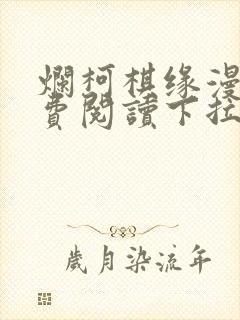 爛柯棋缘漫
費閱讀下拉
歲月染流年